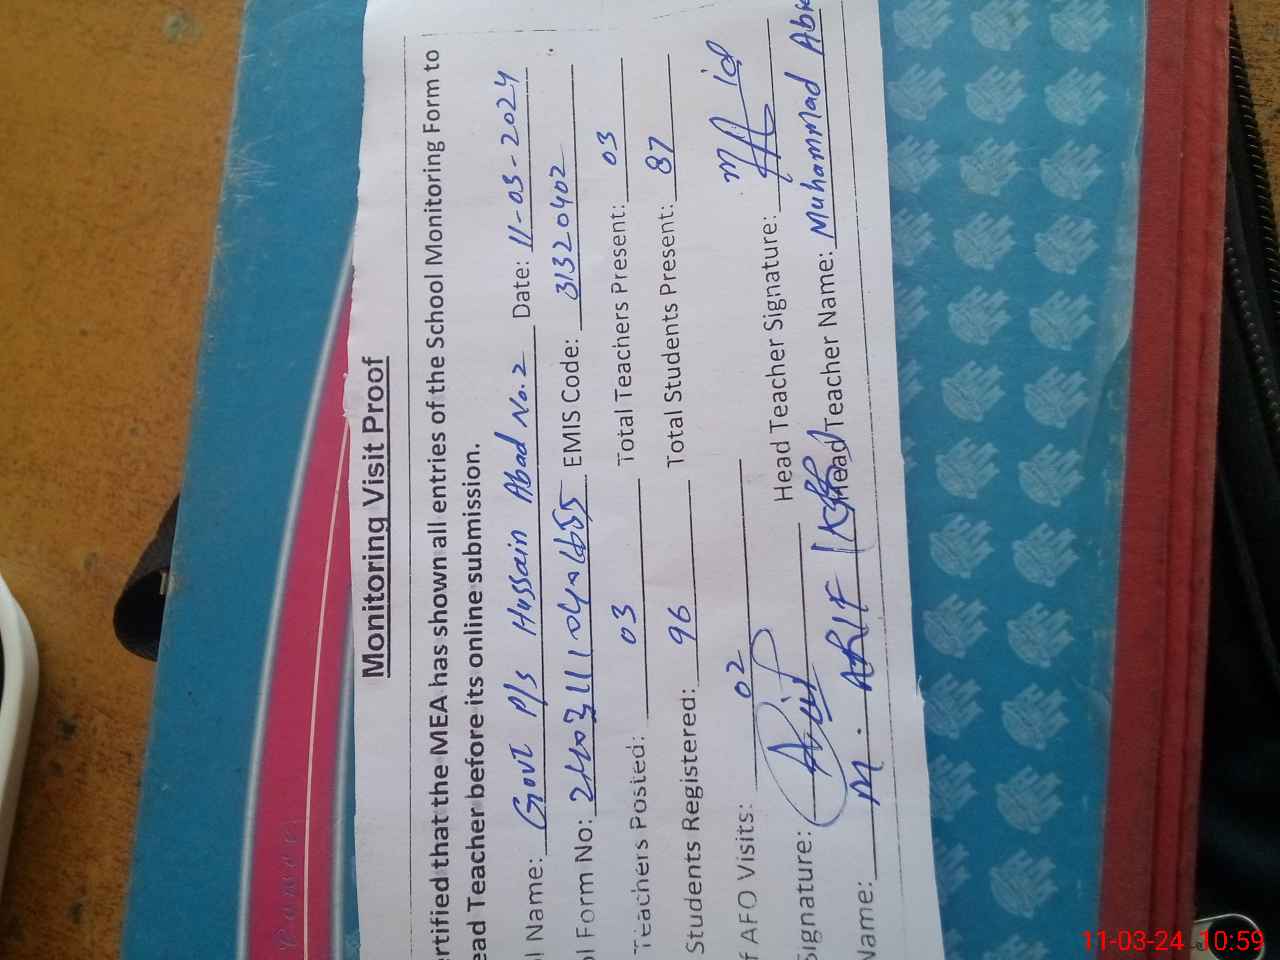 Monitoring Visit Proof
ertified that the MEA has shown all entries of the School Monitoring Form to
ead Teacher before its online submission.
l Name: Govt P/s Hussain Abad No.2 Date: 11-03-2024
l Form No: EMIS Code: 31320402
Teachers Posted: 03 Total Teachers Present: 03
Students Registered: 96 Total Students Present: 87
f AFO Visits: 02
Signature: Head Teacher Signature:
Name: M. ARIF Head Teacher Name: Muhammad Abi
11-03-24 10:59